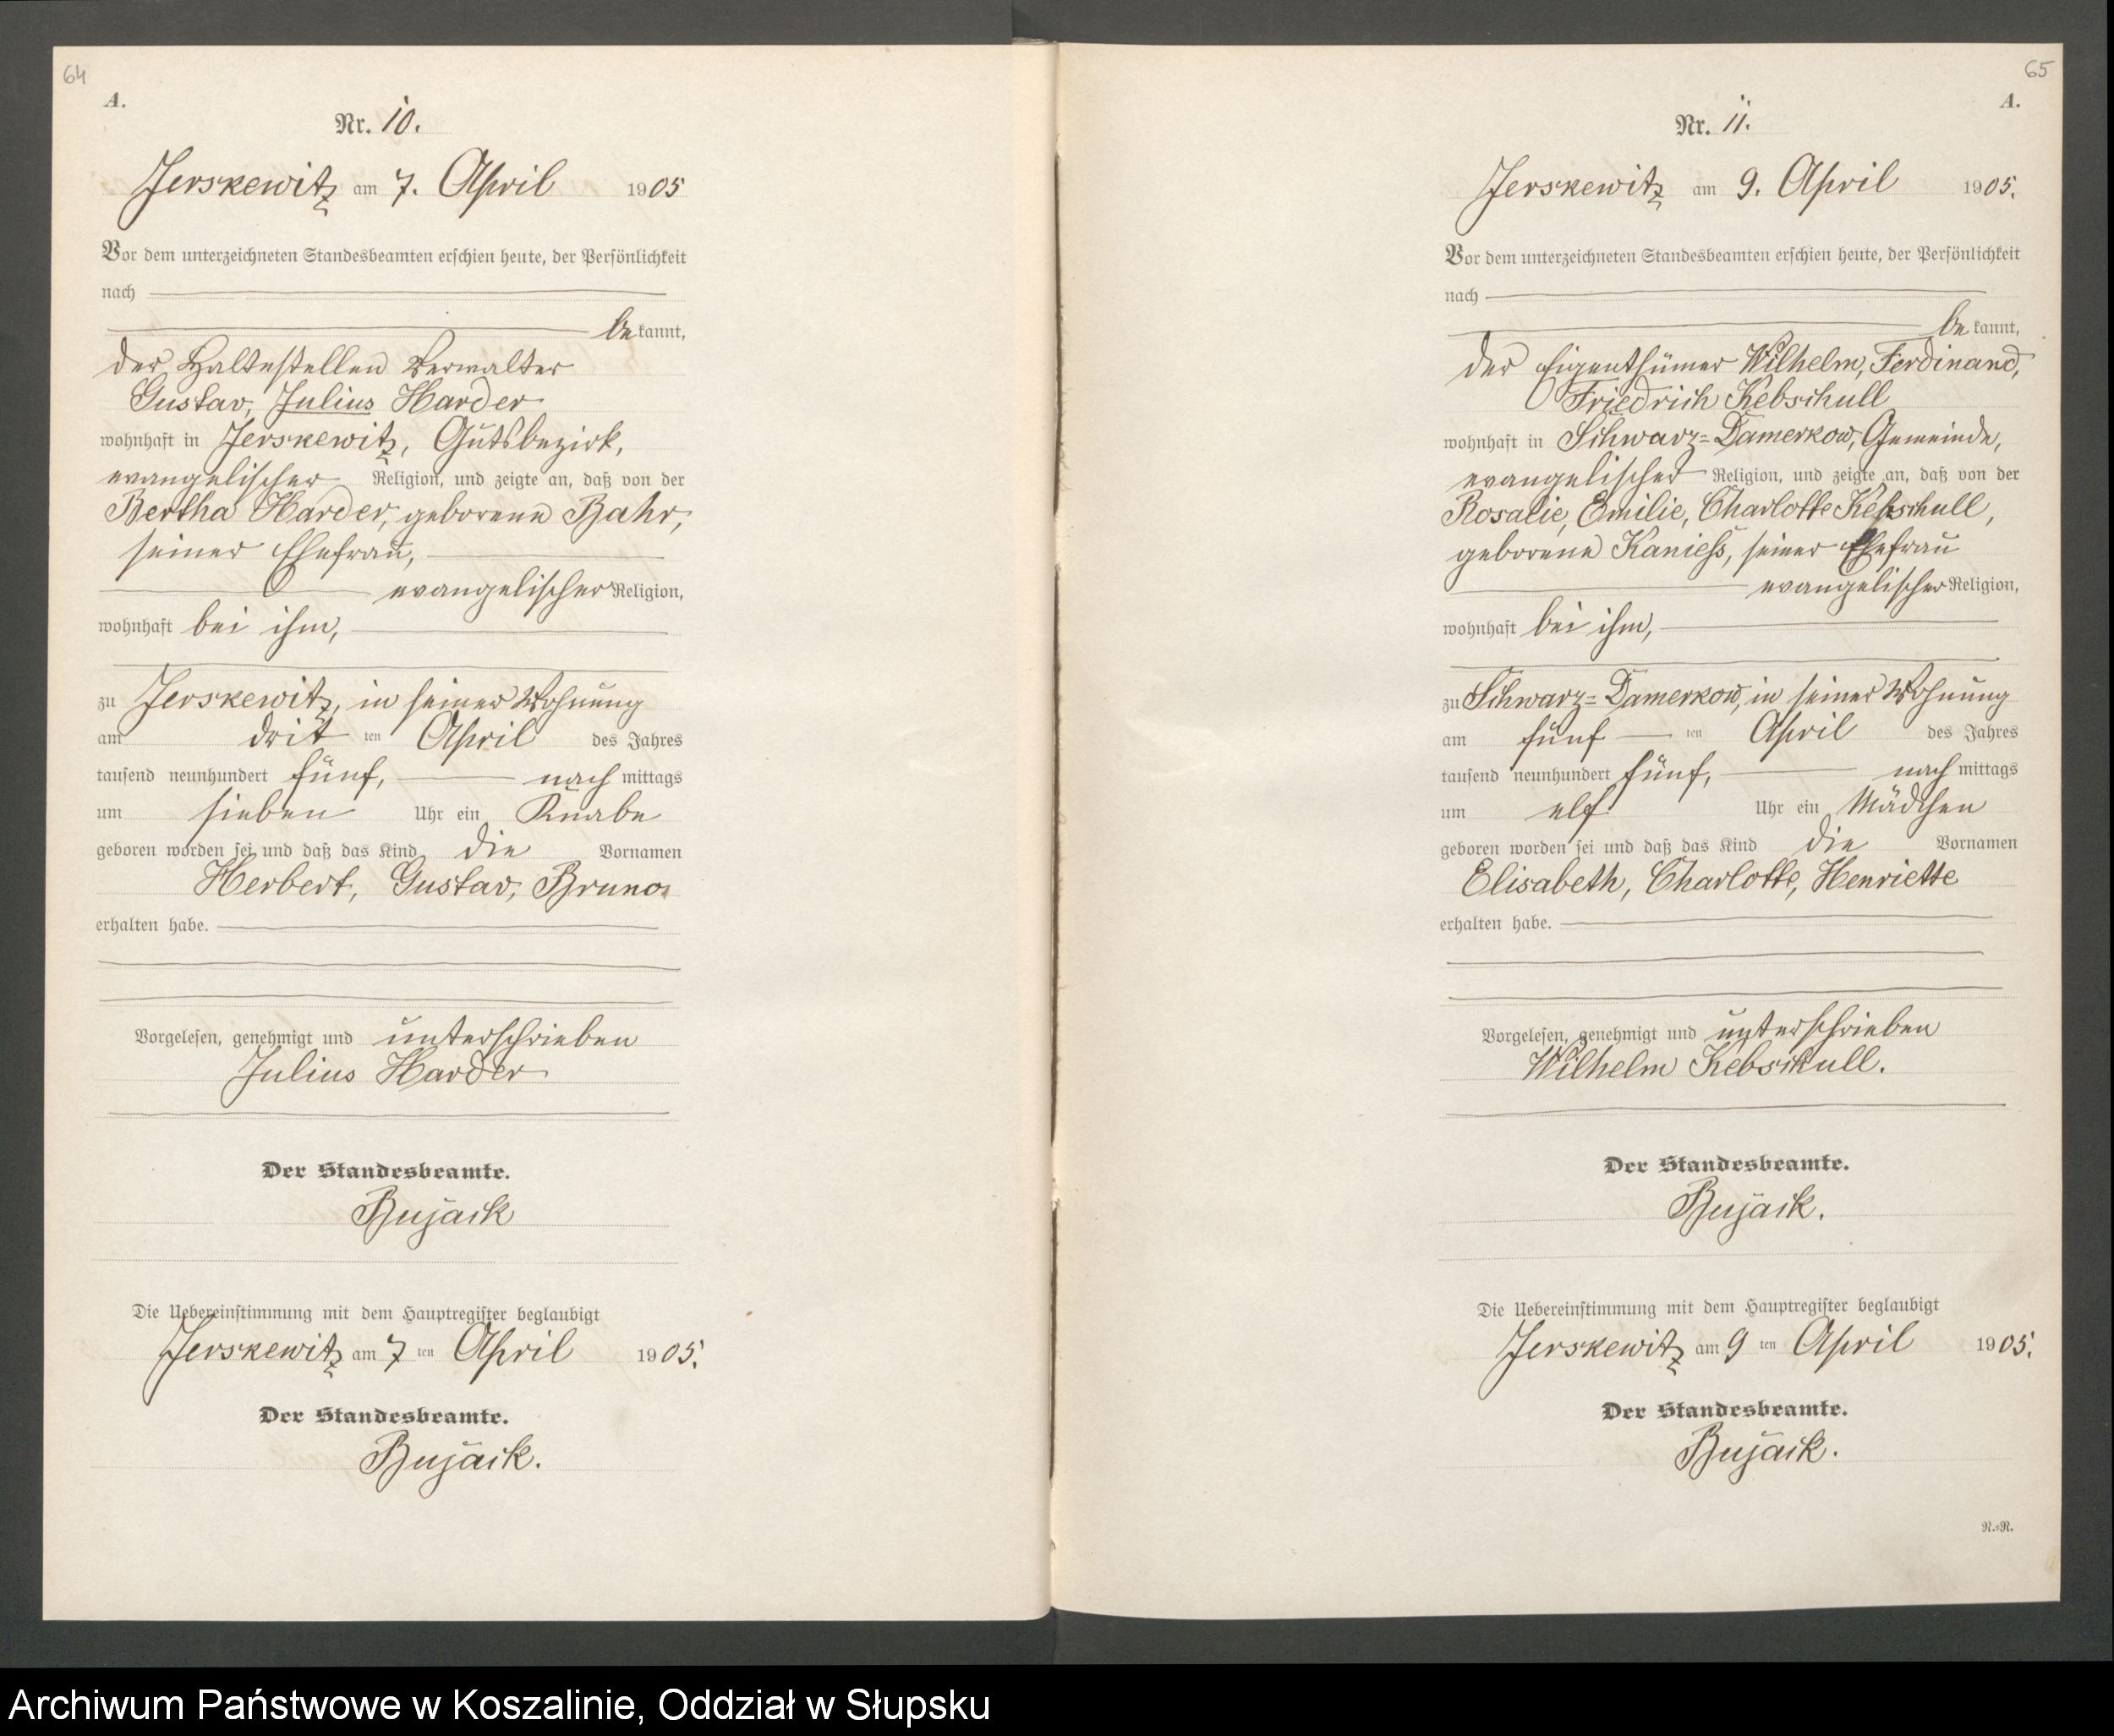 64
A.
Nr. 10.
Jerskewitz am 7. April 1905
Vor dem unterzeichneten Standesbeamten erschien heute, der Persönlichkeit
nach
bekannt,
der Haltestellen Verwalter
Gustav, Julius Harder
wohnhaft in Jerskewitz, Gutsbezirk,
evangelischer Religion, und zeigte an, daß von der
Bertha Harder, geborene Bahr,
seiner Ehefrau,
evangelischer Religion,
wohnhaft bei ihm,
zu Jerskewitz, in seiner Wohnung
am dritten April des Jahres
tausend neunhundert fünf, nachmittags
um sieben Uhr ein Knabe
geboren worden sei und daß das Kind die Vornamen
Herbert, Gustav, Bruno
erhalten habe.
Vorgelesen, genehmigt und unterschrieben
Julius Harder
Der Standesbeamte.
Bujack
Die Uebereinstimmung mit dem Hauptregister beglaubigt
Jerskewitz am 7 ten April 1905.
Der Standesbeamte.
Bujack.
65
A.
Nr. 11.
Jerskewitz am 9. April 1905.
Vor dem unterzeichneten Standesbeamten erschien heute, der Persönlichkeit
nach
bekannt,
der Eigenthümer Wilhelm, Ferdinand,
Friedrich Kebschull
wohnhaft in Schwarz=Damerkow, Gemeinde,
evangelischer Religion, und zeigte an, daß von der
Rosalie, Emilie, Charlotte Kebschull,
geborene Kaniess, seiner Ehefrau
evangelischer Religion,
wohnhaft bei ihm,
zu Schwarz=Damerkow, in seiner Wohnung
am fünf ten April des Jahres
tausend neunhundert fünf, nachmittags
um elf Uhr ein Mädchen
geboren worden sei und daß das Kind die Vornamen
Elisabeth, Charlotte, Henriette
erhalten habe.
Vorgelesen, genehmigt und unterschrieben
Wilhelm Kebschull.
Der Standesbeamte.
Bujack.
Die Uebereinstimmung mit dem Hauptregister beglaubigt
Jerskewitz am 9 ten April 1905.
Der Standesbeamte.
Bujack.
N.=R.
Archiwum Państwowe w Koszalinie, Oddział w Słupsku